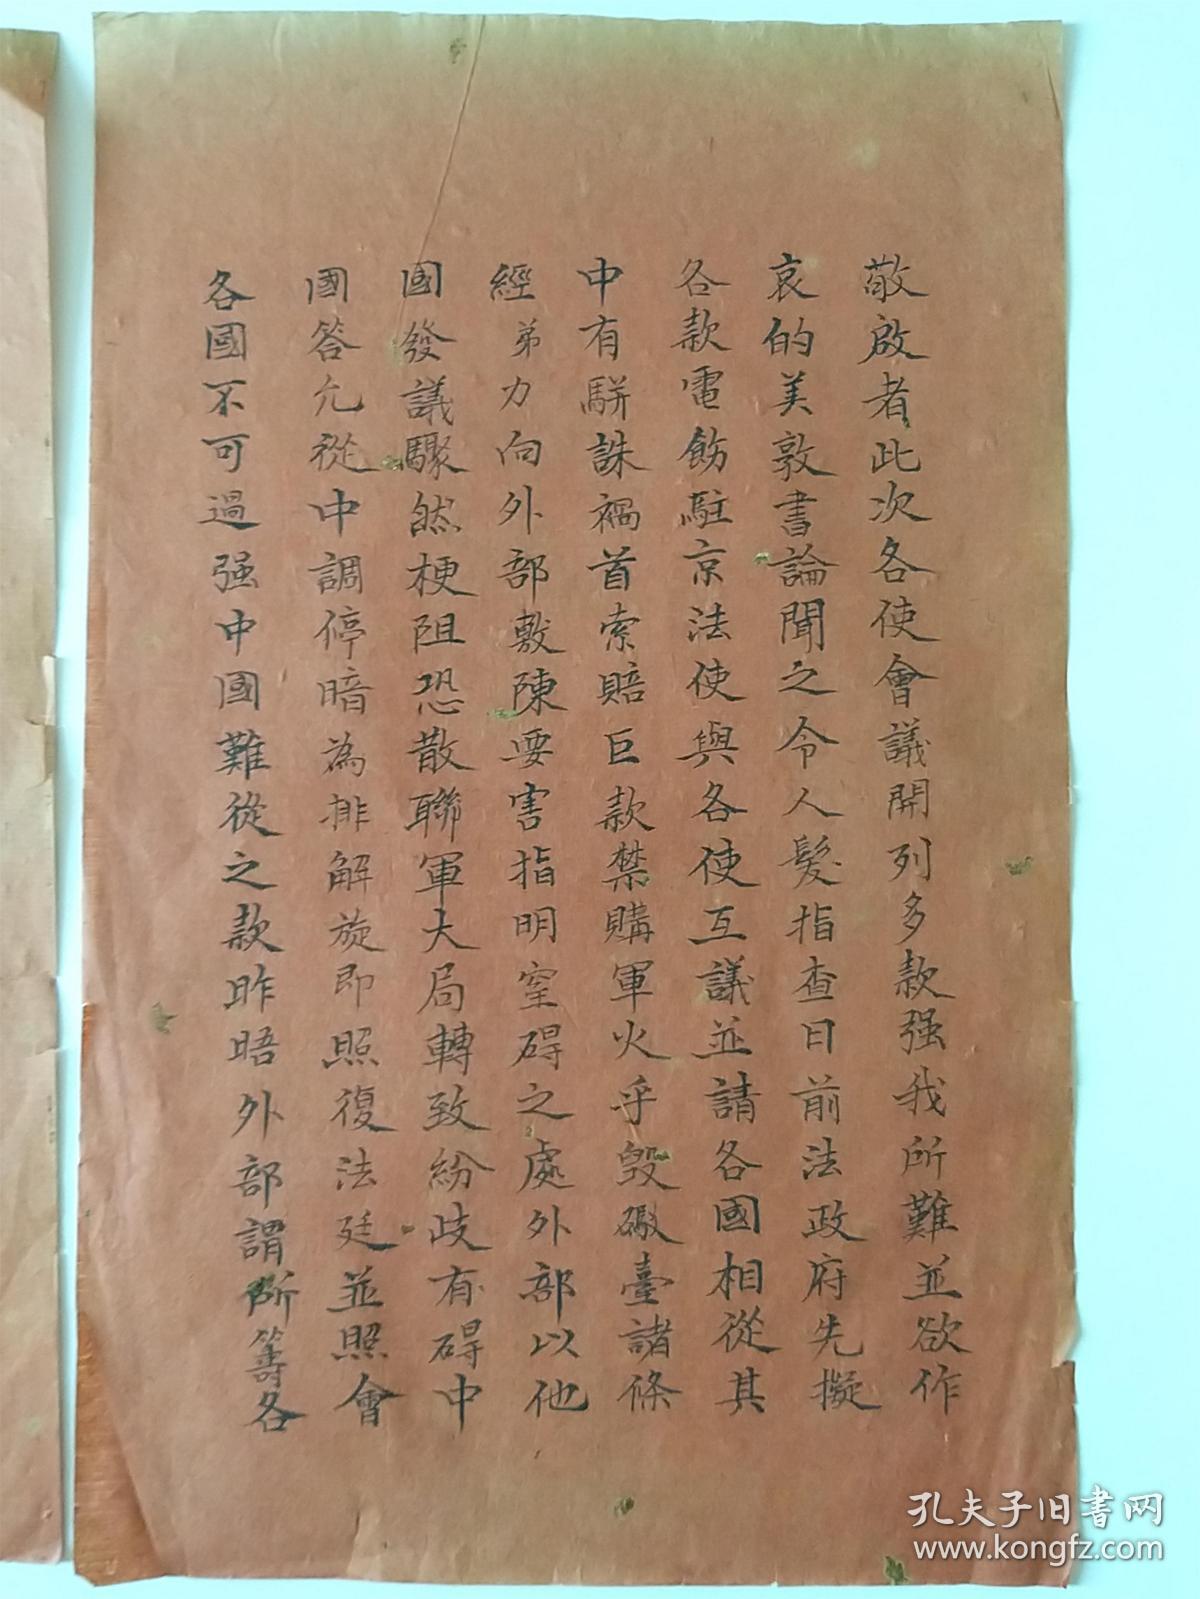 敬啟者此次各使會議開列多款强我所難並欲作
哀的美敦書論聞之令人髮指查日前法政府先擬
各款電飭駐京法使與各使互議並請各國相從其
中有駢誅禍首索賠巨款禁購軍火乎毀礮臺諸條
經弟力向外部敷陳要害指明窒碍之處外部以他
國發議驟然梗阻恐散聯軍大局轉致紛歧有碍中
國答允從中調停暗為排解旋即照復法廷並照會
各國不可過强中國難從之款昨晤外部謂所籌各
孔夫子旧书网
www.kongfz.com